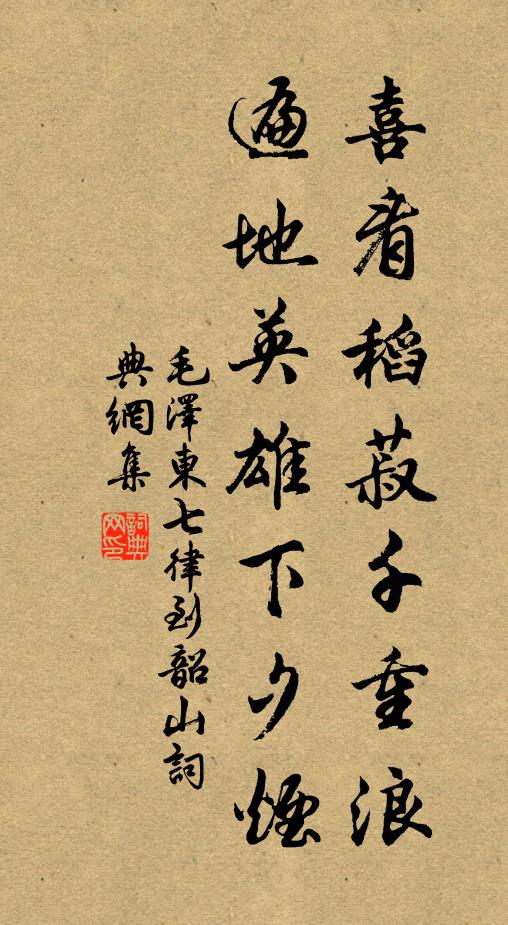 喜看稻菽千重浪
遍地英雄下夕煙
毛澤東七律到韶山詞
典網集
詞典網印